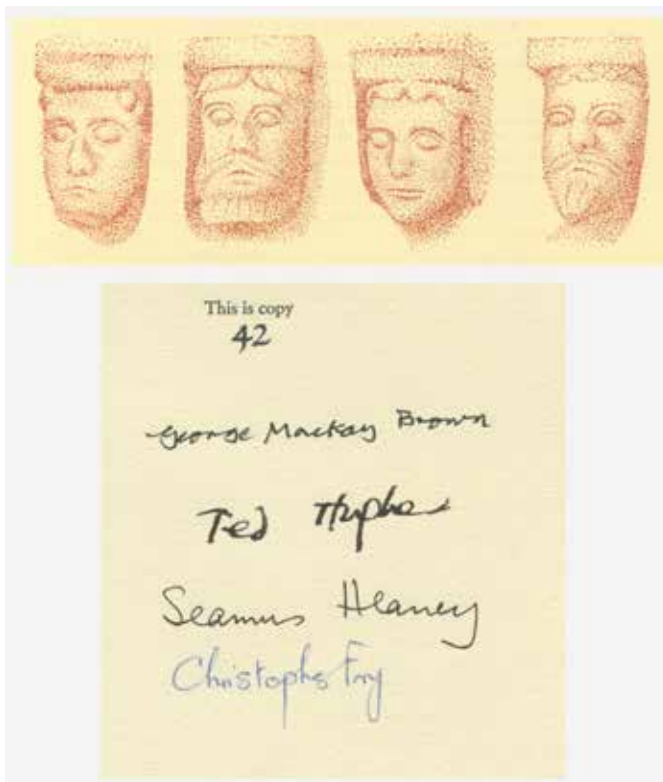 This is copy
42
George Mackay Brown
Ted Hughes
Seamus Heaney
Christopher Fry